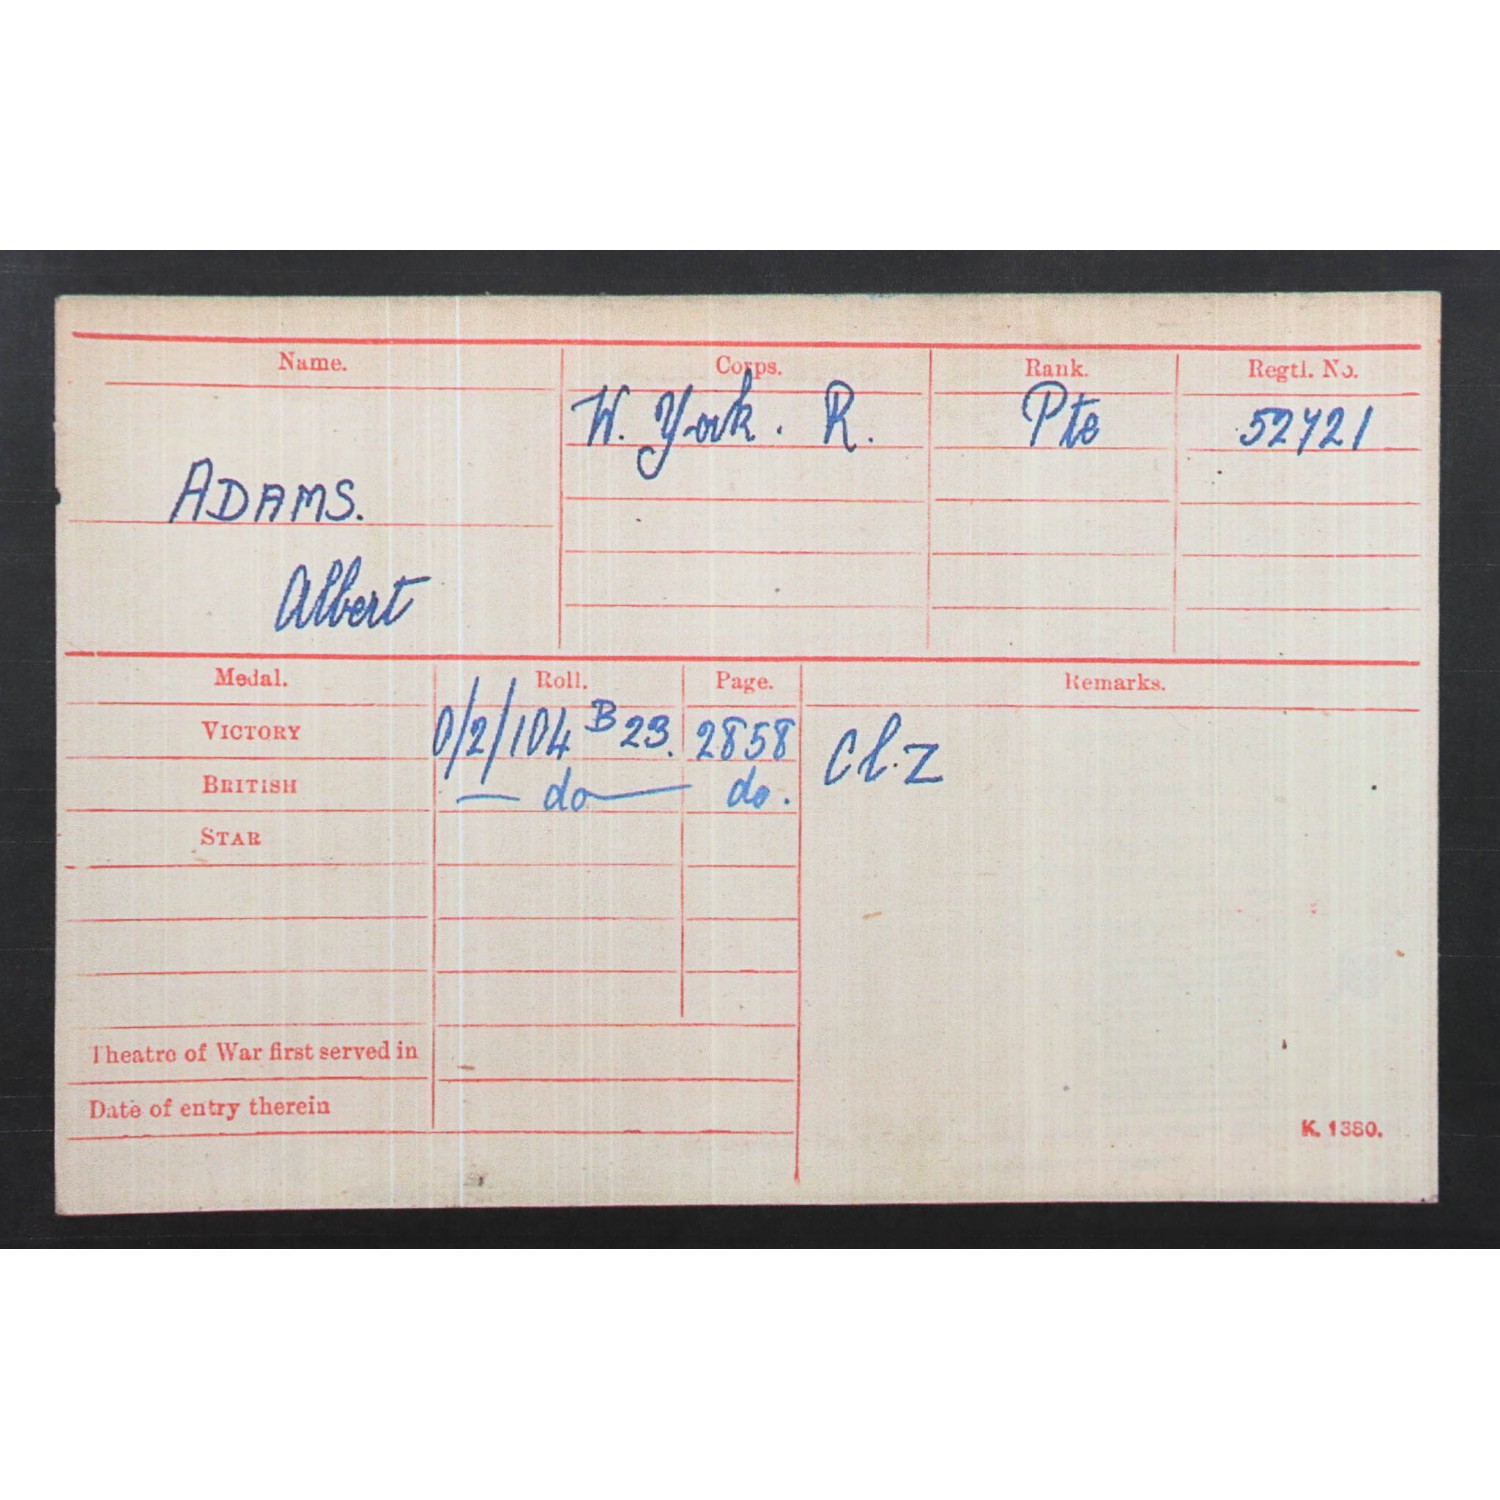 Name. Corps. Rank. Regtl. No.
W. York. R. Pte 52721
ADAMS.
Albert
Medal. Roll. Page. Remarks.
VICTORY 0/2/104 B 23. 2858 Cl. Z
BRITISH — do — do.
STAR
Theatre of War first served in
Date of entry therein
K. 1380.